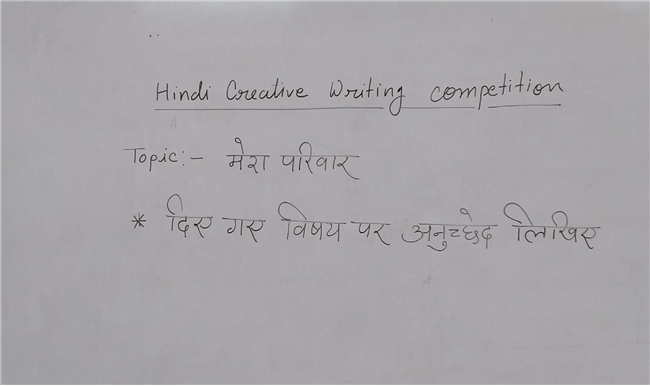 Hindi Creative Writing competition
Topic:- मेरा परिवार
* दिए गए विषय पर अनुच्छेद लिखिए